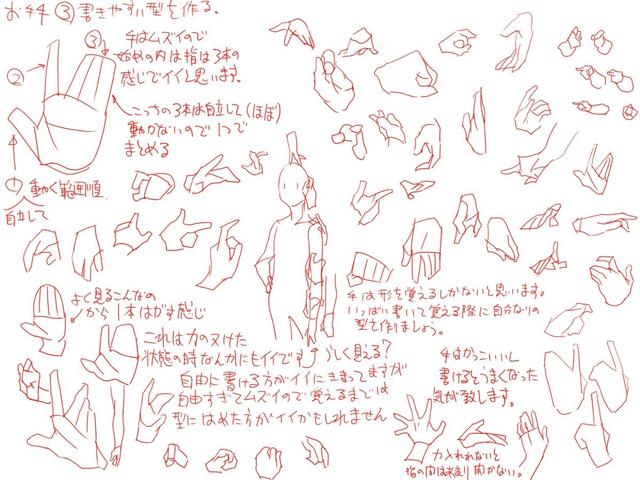 お手手 ③ 書きやすい型を作る。
③
手はムズイので
始めの内は指は3本の
感じでイイと思います。
②
こっちの3本は自立して(ほぼ)
動かないので1つで
まとめる
① 動かく範囲順
自立して
よく見るこんなの
から1本はがす感じ
これは力のヌけた
状態の時なんかにもイイです
らしく見える?
自由に書ける方がイイにきまってますが
自由すぎてムズイので覚えるまでは
型にはめた方がイイかもしれません
手は形を覚えるしかないと思います。
いっぱい書いて覚える際に自分なりの
型を作りましょう。
手はかっこいいし
書けるとうまくなった
気が致します。
力入れないと
指の間はあまり開かない。